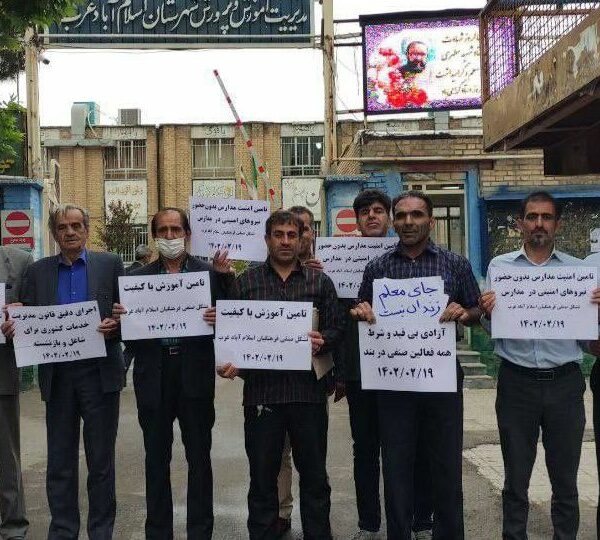 مدیریت آموزش و پرورش شهرستان اسلام آباد غرب
اجرای دقیق قانون مدیریت
خدمات کشوری برای
شاغل و بازنشسته
۱۴۰۲/۰۲/۱۹
تامین آموزش با کیفیت
تشکل صنفی فرهنگیان اسلام آباد غرب
۱۴۰۲/۰۲/۱۹
تامین امنیت مدارس بدون حضور
نیروهای امنیتی در مدارس
تشکل صنفی فرهنگیان اسلام آباد غرب
۱۴۰۲/۰۲/۱۹
تامین آموزش با کیفیت
تشکل صنفی فرهنگیان اسلام آباد غرب
۱۴۰۲/۰۲/۱۹
تامین امنیت مدارس بدون حضور
نیروهای امنیتی در مدارس
جای معلم
زندان نیست
آزادی بی قید و شرط
همه فعالین صنفی در بند
۱۴۰۲/۰۲/۱۹
تامین امنیت مدارس بدون حضور
نیروهای امنیتی در مدارس
تشکل صنفی فرهنگیان اسلام آباد غرب
۱۴۰۲/۰۲/۱۹